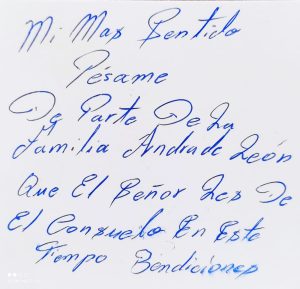 Mi Mas Sentido
Pésame
De Parte De La
Familia Andrade León
Que El Señor Les De
El Consuelo En Este
Tiempo Bendiciones